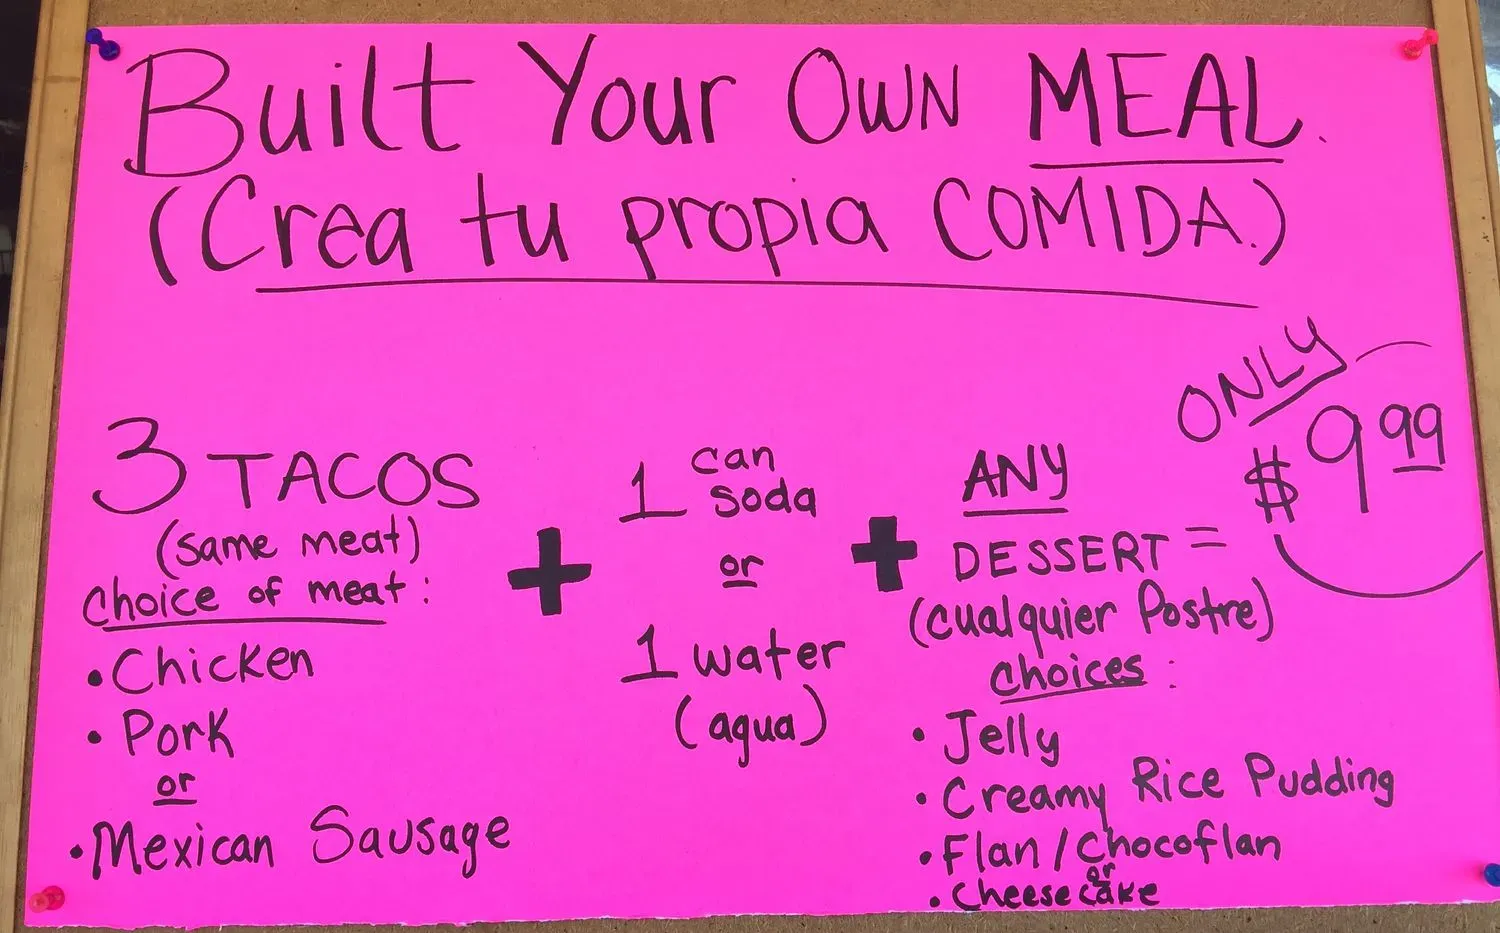 Built Your Own MEAL.
(Crea tu propia COMIDA.)
ONLY
$9.99
3 TACOS
(same meat)
choice of meat:
• Chicken
• Pork
or
• Mexican Sausage
+
1 can soda
or
1 water
(agua)
+
ANY
DESSERT =
(cualquier Postre)
choices:
• Jelly
• Creamy Rice Pudding
• Flan/Chocoflan
or
• Cheesecake